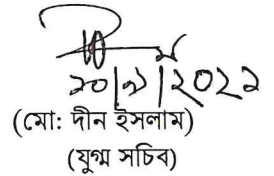 ২০|৯|২০২২
(মো: দীন ইসলাম)
(যুগ্ম সচিব)